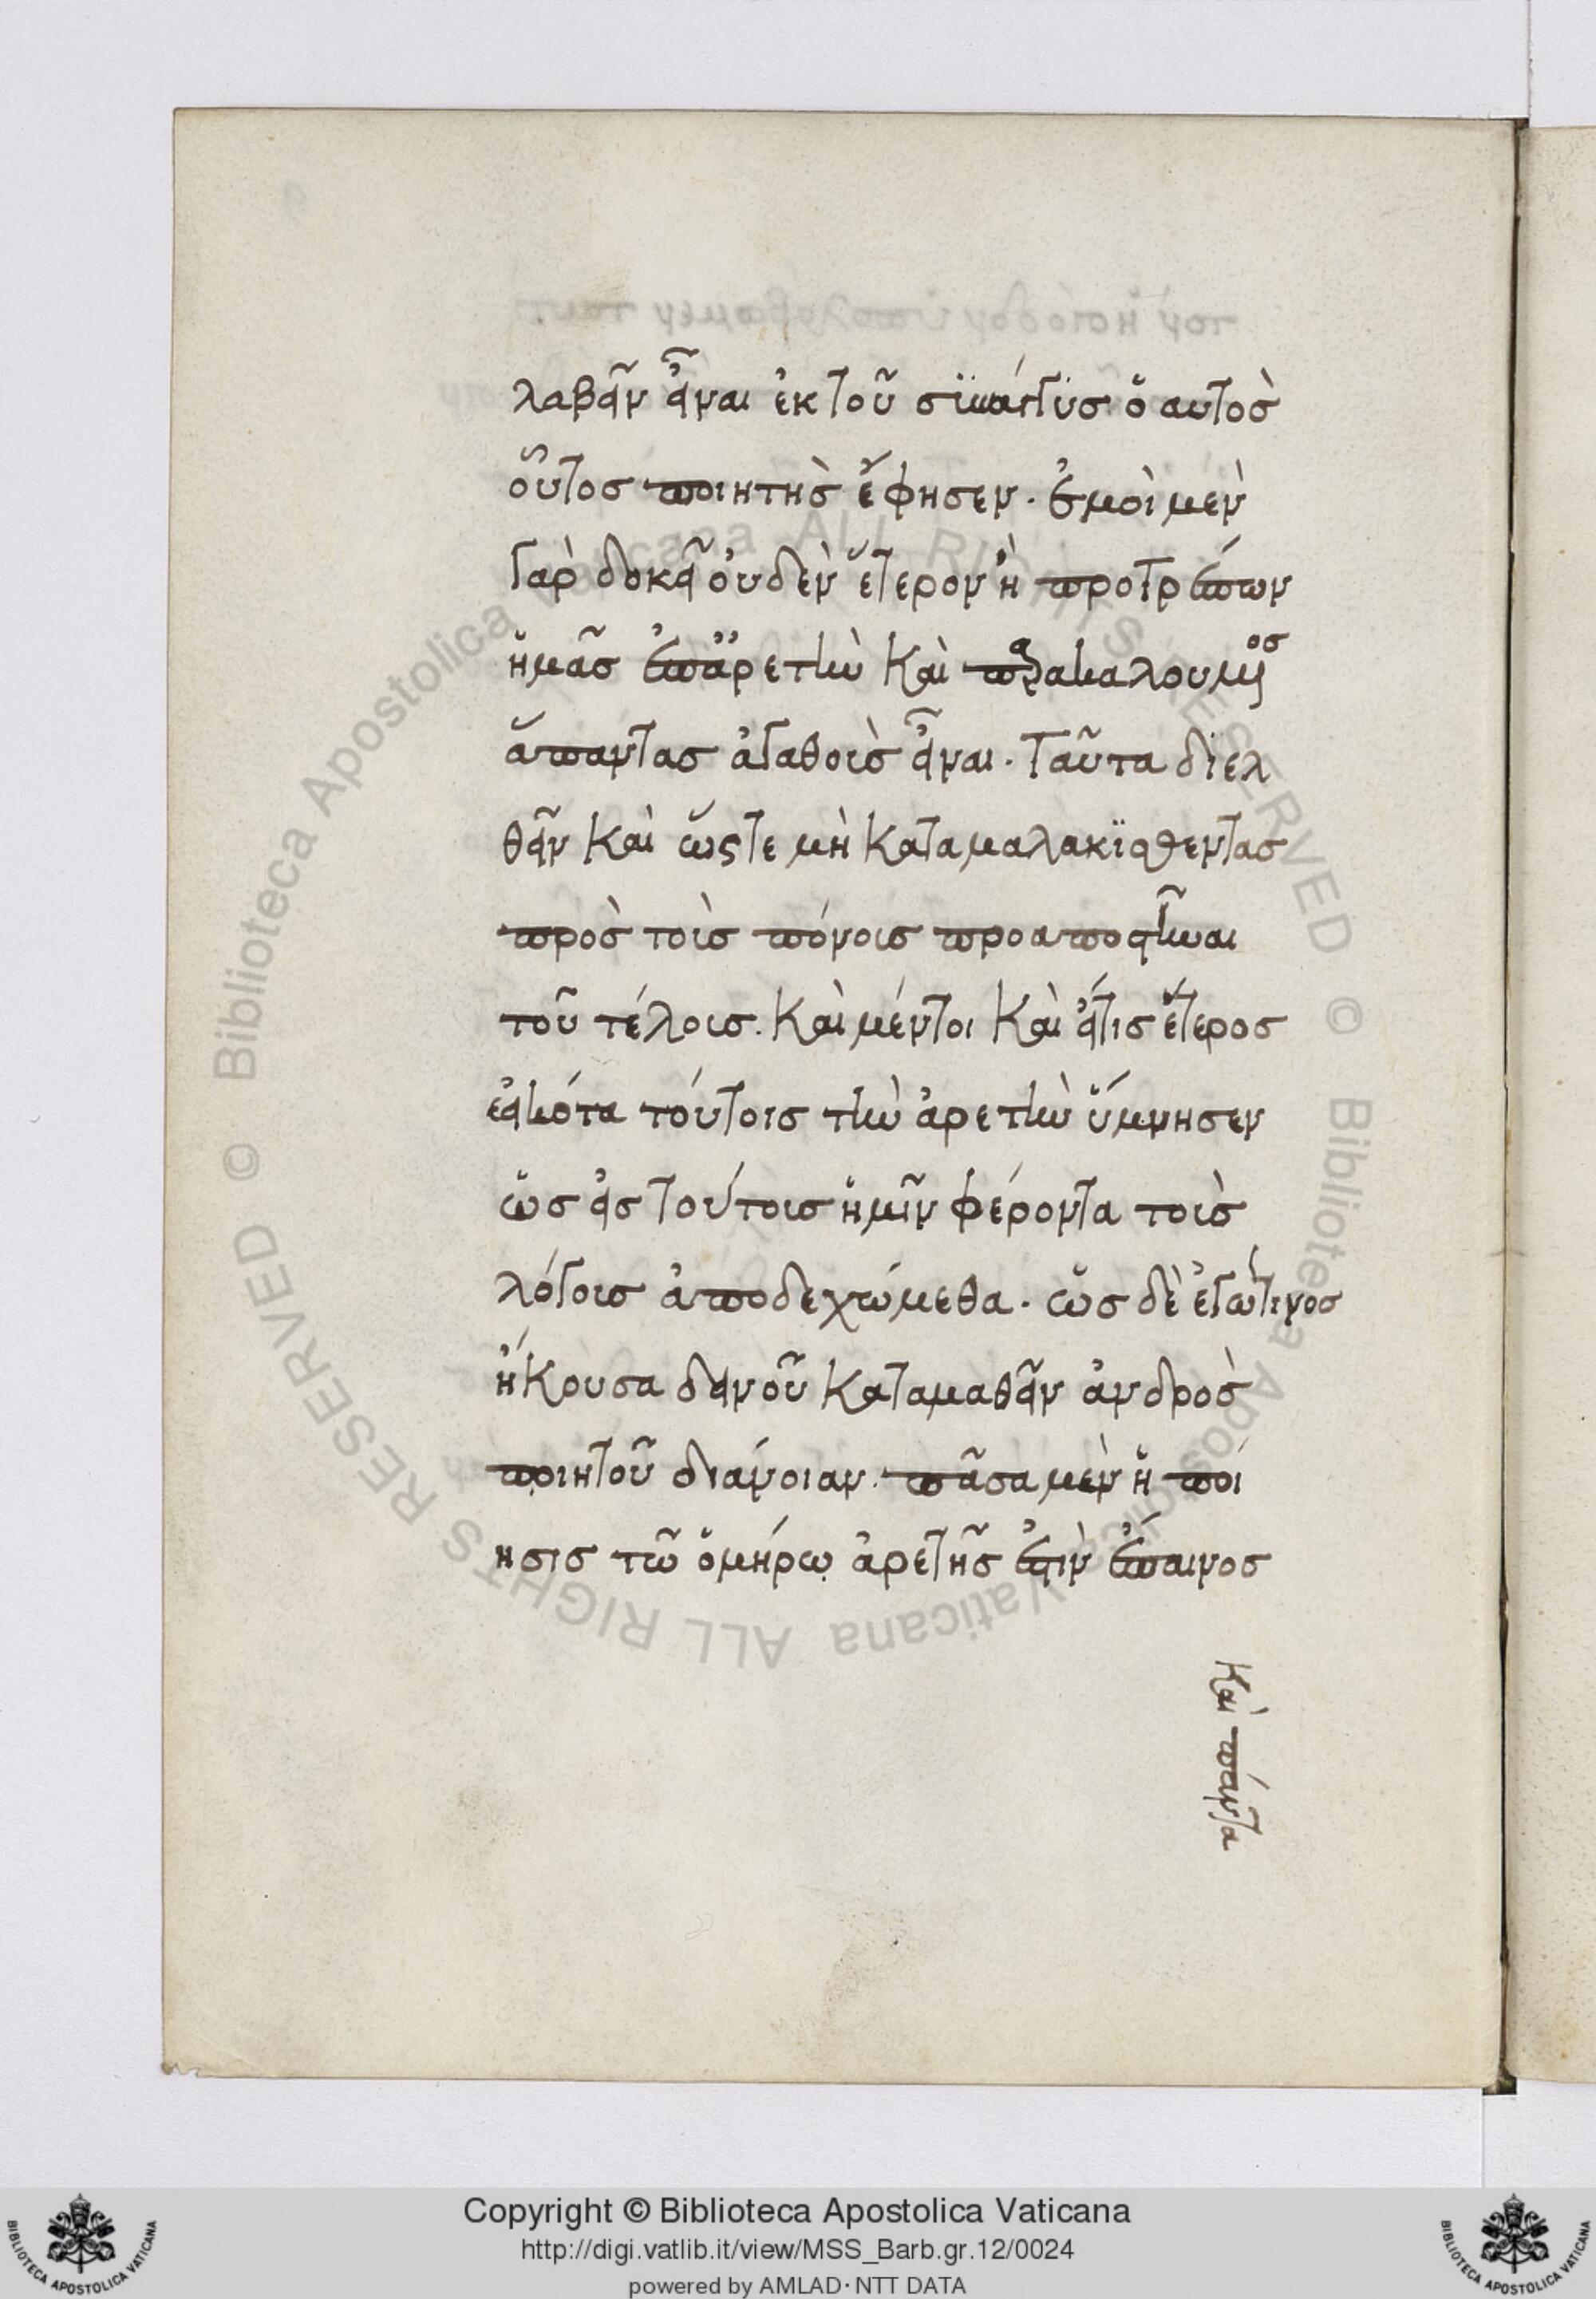 λαβεῖν εἶναι ἐκ τοῦ σύμπαντος ὁ αυτὸς
οὗτος ποιητὴς ἔφησεν. ἐμοὶ μὲν
γὰρ δοκεῖ οὐδὲν ἕτερον ἢ προτρέπων
ἡμᾶς ἐπ' ἀρετὴν καὶ παρακαλούμενος
ἅπαντας ἀγαθοὺς εἶναι. ταῦτα διελ
θεῖν καὶ ὥστε μὴ καταμαλακισθεντας
πρὸς τοὺς πόνους προαποστῆναι
τοῦ τέλους. καὶ μέντοι καὶ εἴ τις ἕτερος
ἐοικότα τούτοις τὴν ἀρετὴν ὕμνησεν
ὡς εἰς τούτους ἡμῖν φέροντα τοὺς
λόγους ἀποδεχώμεθα. ὡς δὲ ἐγώ τινος
ἤκουσα δεινοῦ καταμαθεῖν ἀνδρὸς
ποιητοῦ διάνοιαν. πᾶσα μὲν ἡ ποί
ησις τῶ ὁμήρω ἀρετῆς ἐστιν ἔπαινος
καὶ πάντα
Copyright © Biblioteca Apostolica Vaticana
http://digi.vatlib.it/view/MSS_Barb.gr.12/0024
powered by AMLAD·NTT DATA
© Biblioteca Apostolica Vaticana ALL RIGHTS RESERVED
© Biblioteca Apostolica Vaticana ALL RIGHTS RESERVED
BIBLIOTECA APOSTOLICA VATICANA
BIBLIOTECA APOSTOLICA VATICANA